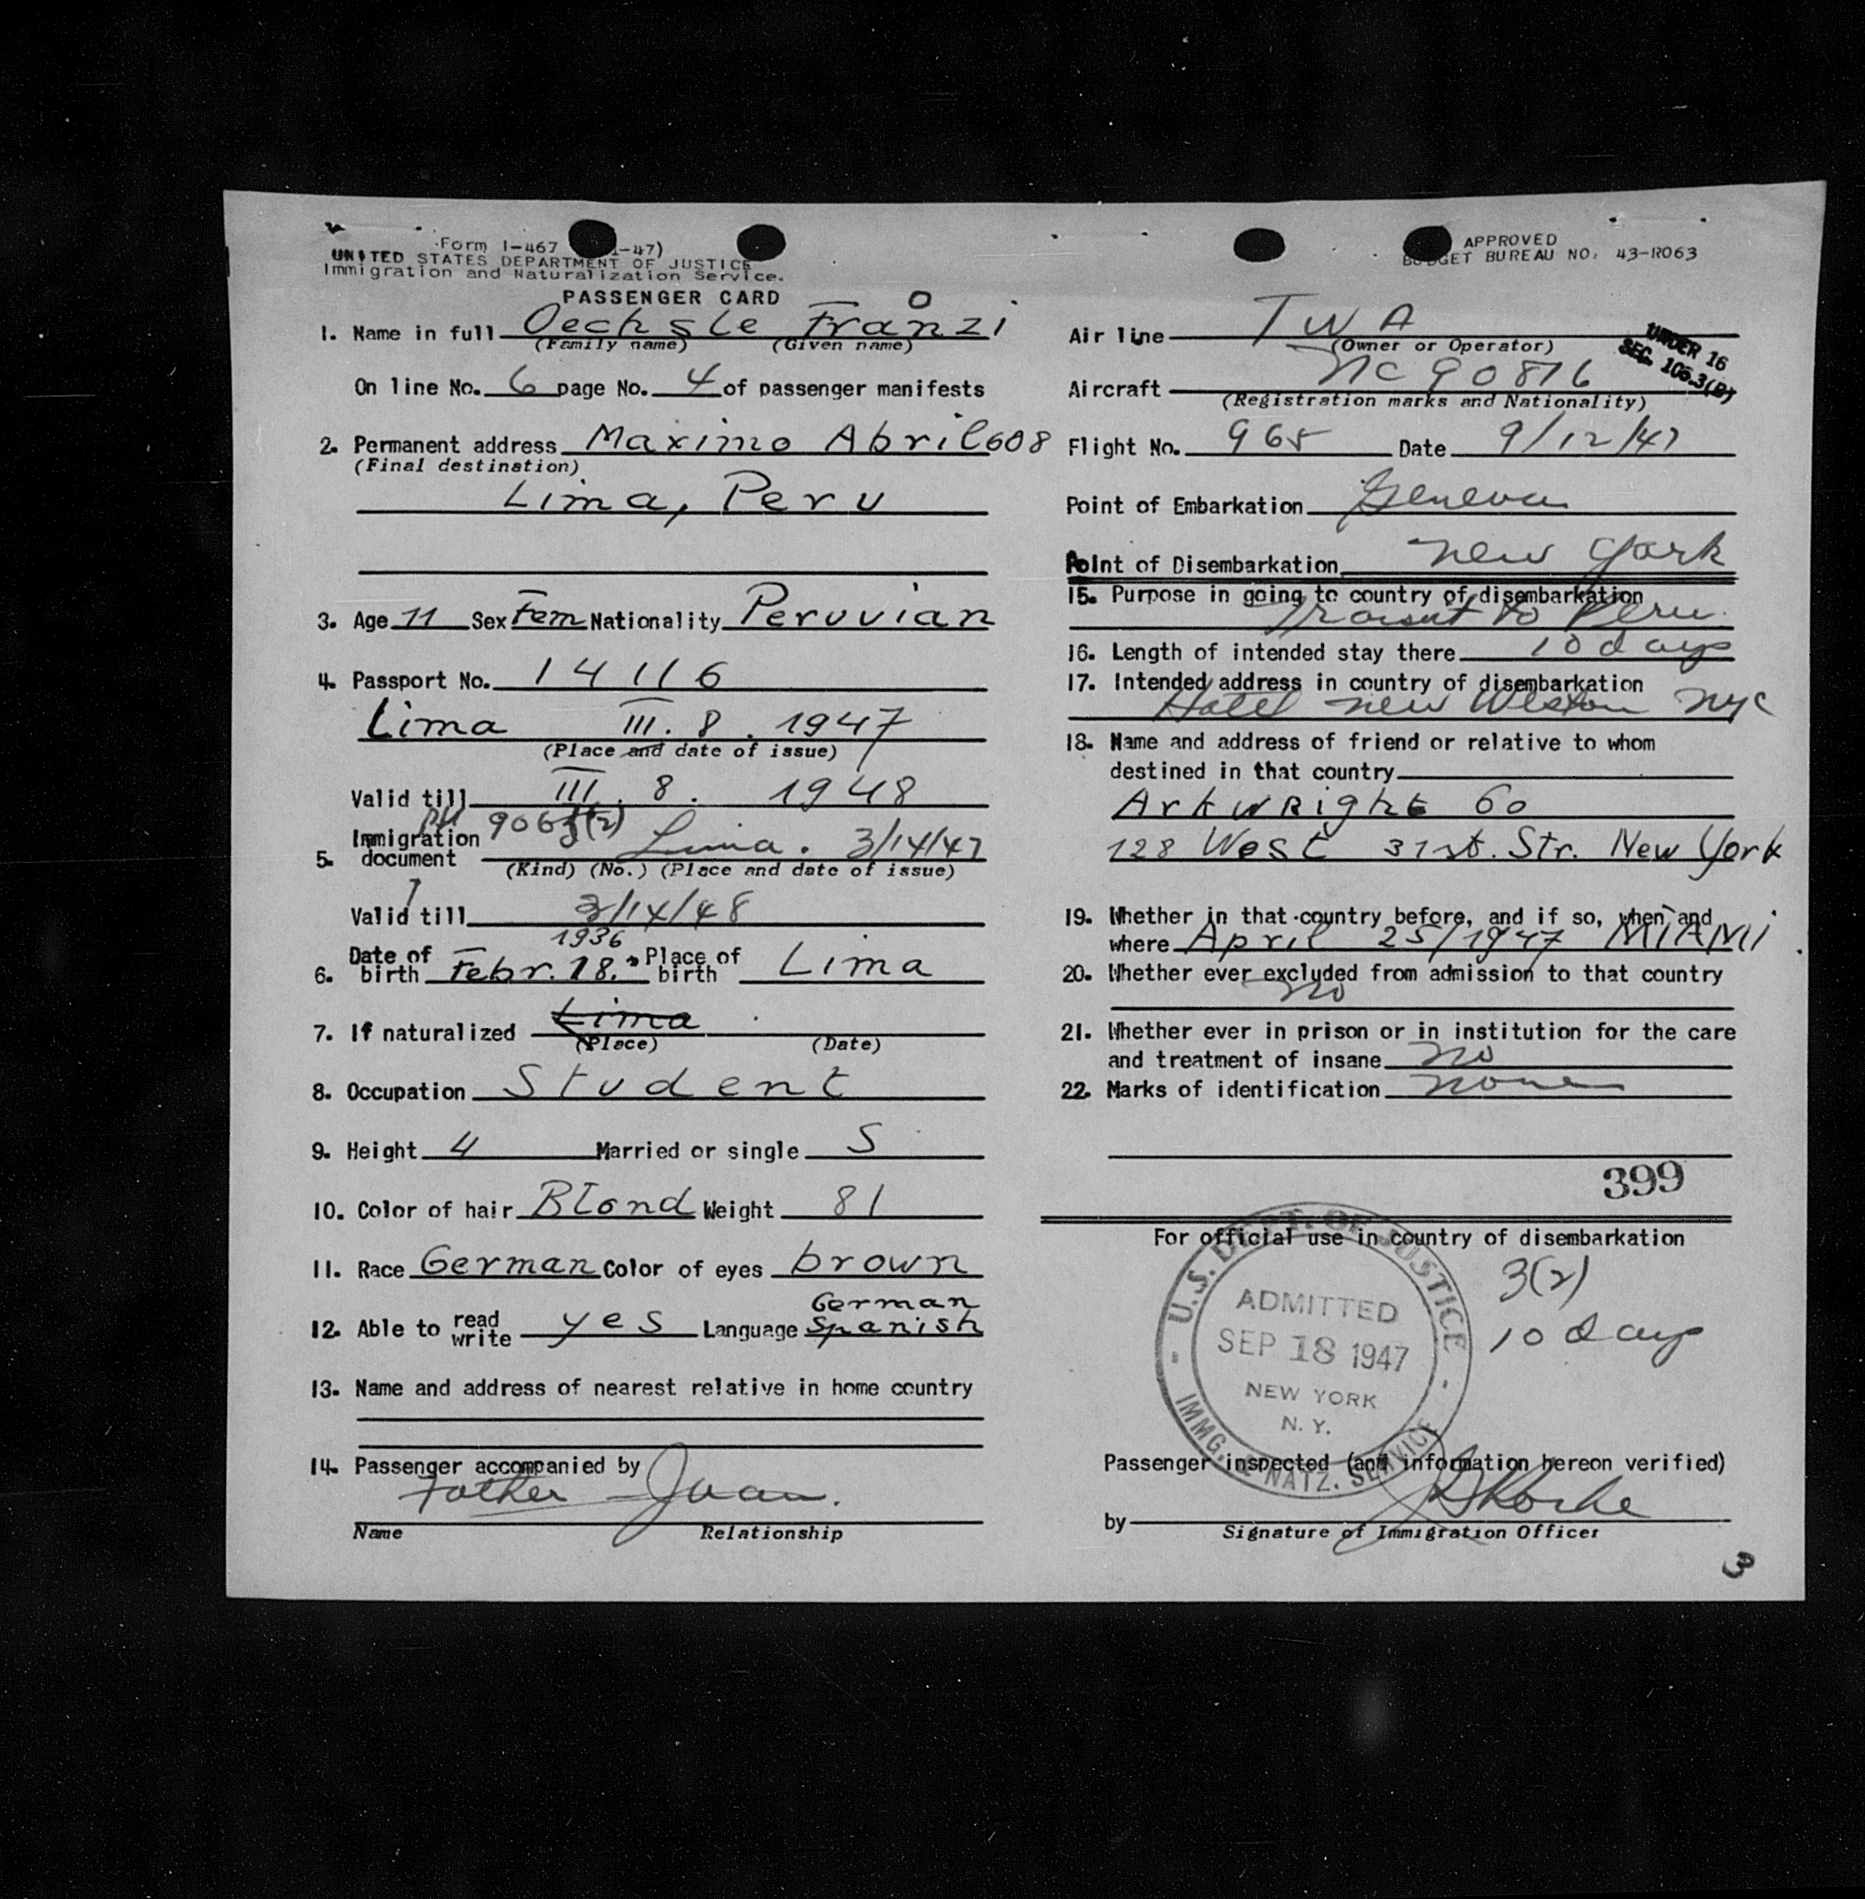 Form I-467 -47)
UNITED STATES DEPARTMENT OF JUSTICE
Immigration and Naturalization Service.
PASSENGER CARD
1. Name in full Oechsle Franzi
(Family name) (Given name)
On line No. 6 page No. 4 of passenger manifests
2. Permanent address Maximo Abril 608
(Final destination)
Lima, Peru
3. Age 11 Sex Fem Nationality Peruvian
4. Passport No. 14116
Lima III. 8. 1947
(Place and date of issue)
Valid till III. 8. 1948
Immigration
5. document Lima. 3/14/47
(Kind) (No.) (Place and date of issue)
Valid till 3/14/48
1936
6. Date of birth Febr. 18. Place of birth Lima
7. If naturalized Lima
(Place) (Date)
8. Occupation Student
9. Height 4 Married or single S
10. Color of hair Blond Weight 81
11. Race German Color of eyes brown
German
12. Able to read write yes Language Spanish
13. Name and address of nearest relative in home country
14. Passenger accompanied by
Father - Juan.
Name Relationship
APPROVED
BUDGET BUREAU NO. 43-R063
Air line TWA
(Owner or Operator)
UNDER 16
SEC. 106.3(B)
Aircraft NC 90816
(Registration marks and Nationality)
Flight No. 965 Date 9/12/47
Point of Embarkation Geneva
Point of Disembarkation New York
15. Purpose in going to country of disembarkation
Transit to Peru
16. Length of intended stay there 10 days
17. Intended address in country of disembarkation
Hotel New Weston NYC
18. Name and address of friend or relative to whom
destined in that country
Arkwright 60
128 West 31st. Str. New York
19. Whether in that country before, and if so, when and
where April 25/1947 MIAMI
20. Whether ever excluded from admission to that country
no
21. Whether ever in prison or in institution for the care
and treatment of insane no
22. Marks of identification none
399
For official use in country of disembarkation
U.S. DEPT. OF JUSTICE
ADMITTED
SEP 18 1947
NEW YORK
N. Y.
IMMG. & NATZ. SERVICE
3(2)
10 days
Passenger inspected (and information hereon verified)
by
Signature of Immigration Officer
3